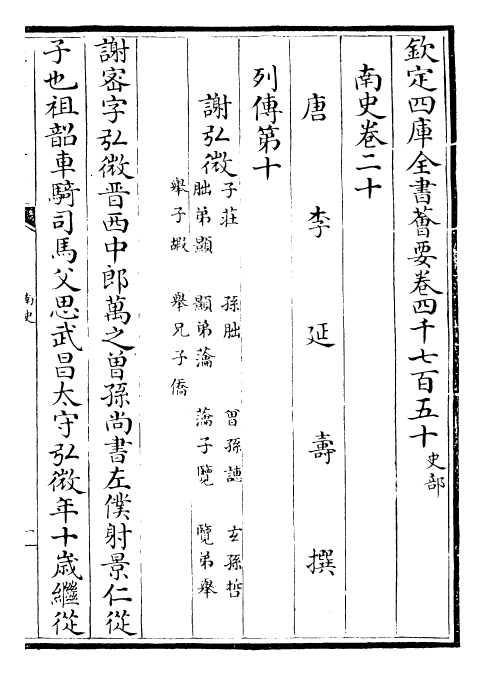 欽定四庫全書薈要卷四千七百五十 史部
南史卷二十
唐 李 延 壽 撰
列傳第十
謝弘微 子莊 孫朏 曾孫譓 玄孫哲
朏弟顥 顥弟瀹 瀹子覽 覽弟舉
舉子嘏 舉兄子僑
謝宻字弘微晉西中郎萬之曽孫尚書左僕射景仁從
子也祖韶車騎司馬父思武昌太守弘微年十歳繼從
南史